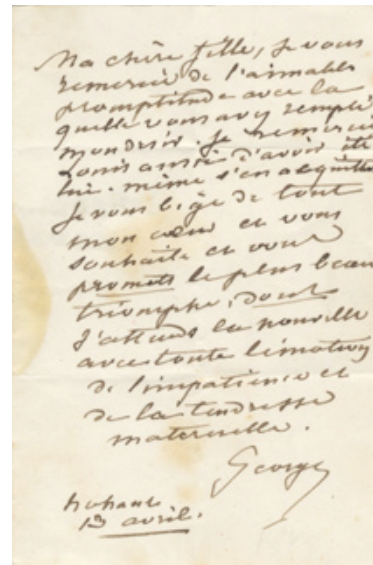 Ma chère fille, je vous
remercie de l'aimable
promptitude avec la
quelle vous avez rempli
mon désir. je remercie
Louis aussi d'avoir été
lui-même s'en acquitter
je vous bige de tout
mon cœur et vous
souhaite et vous
promets le plus beau
triomphe, dont
j'attends la nouvelle
avec toute l'émotion
de l'impatience et
de la tendresse
maternelle.
George
Nohant
13 avril.